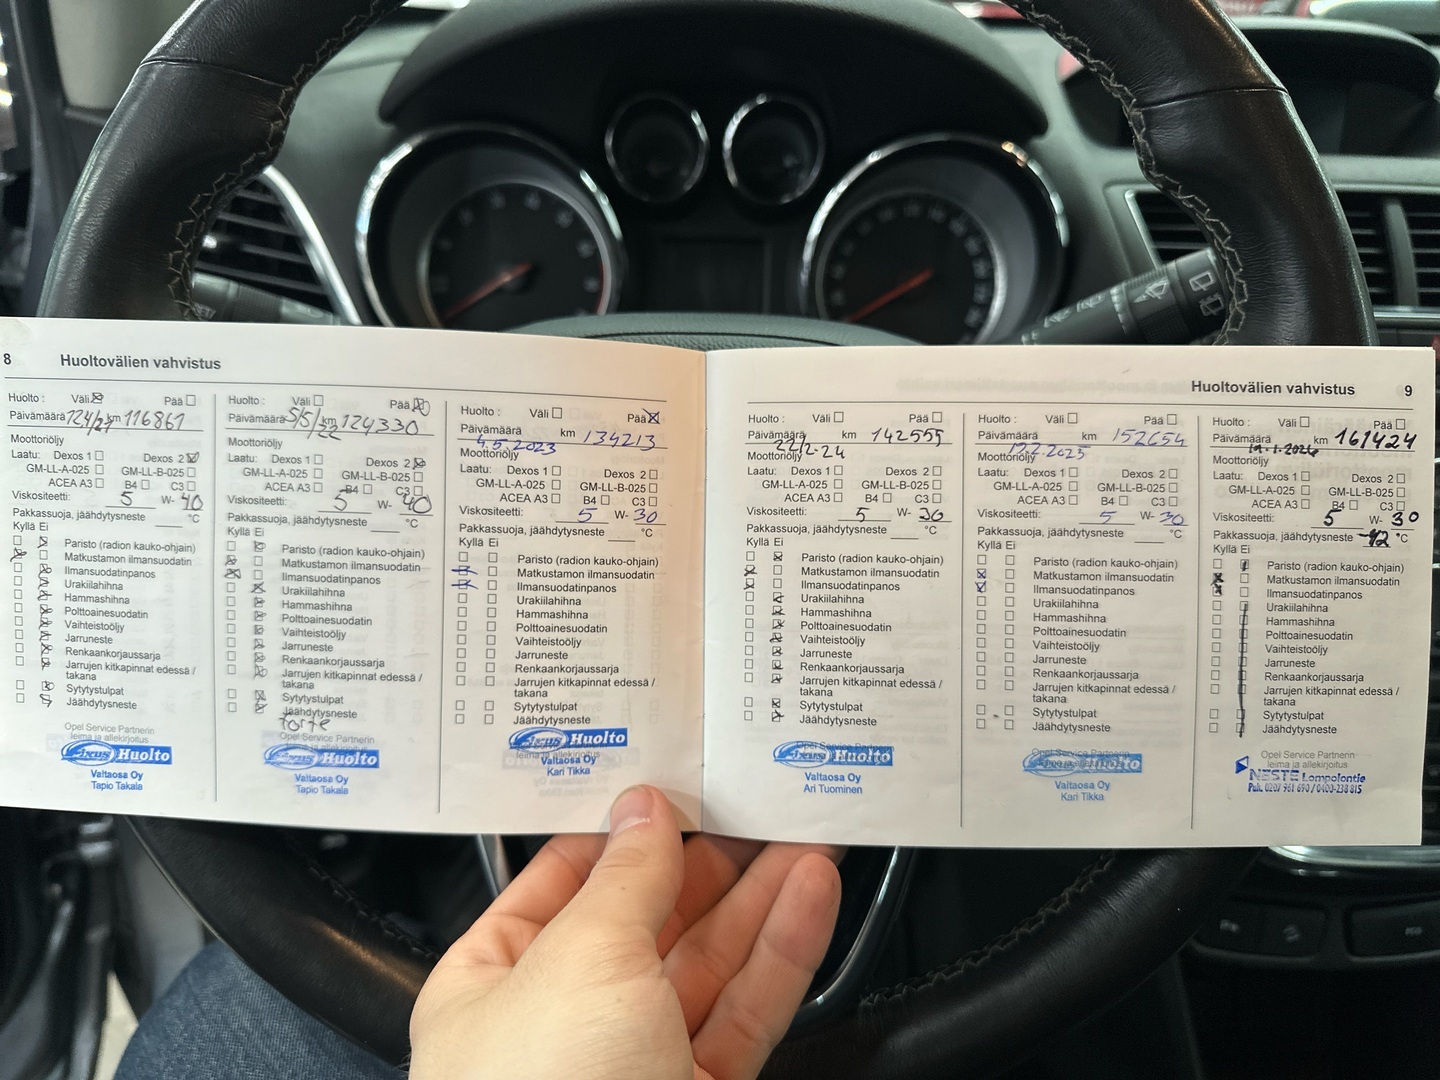 8 Huoltovälien vahvistus
Huolto : Väli Pää
Päivämäärä km 116861
Moottoriöljy
Laatu: Dexos 1 Dexos 2
GM-LL-A-025 GM-LL-B-025
ACEA A3 B4 C3
Viskositeetti: 5 W- 40
Pakkassuoja, jäähdytysneste °C
Kyllä Ei
Paristo (radion kauko-ohjain)
Matkustamon ilmansuodatin
Ilmansuodatinpanos
Urakiilahihna
Hammashihna
Polttoainesuodatin
Vaihteistoöljy
Jarruneste
Renkaankorjaussarja
Jarrujen kitkapinnat edessä /
takana
Sytytystulpat
Jäähdytysneste
Opel Service Partnerin
leima ja allekirjoitus
Fixus Huolto
Valtaosa Oy
Tapio Takala
Huolto : Väli Pää
Päivämäärä 5/5/22 km 124330
Moottoriöljy
Laatu: Dexos 1 Dexos 2
GM-LL-A-025 GM-LL-B-025
ACEA A3 B4 C3
Viskositeetti: 5 W- 40
Pakkassuoja, jäähdytysneste °C
Kyllä Ei
Paristo (radion kauko-ohjain)
Matkustamon ilmansuodatin
Ilmansuodatinpanos
Urakiilahihna
Hammashihna
Polttoainesuodatin
Vaihteistoöljy
Jarruneste
Renkaankorjaussarja
Jarrujen kitkapinnat edessä /
takana
Sytytystulpat
Jäähdytysneste
Opel Service Partnerin
leima ja allekirjoitus
Fixus Huolto
Valtaosa Oy
Tapio Takala
Huolto : Väli Pää
Päivämäärä 4.5.2023 km 134213
Moottoriöljy
Laatu: Dexos 1 Dexos 2
GM-LL-A-025 GM-LL-B-025
ACEA A3 B4 C3
Viskositeetti: 5 W- 30
Pakkassuoja, jäähdytysneste °C
Kyllä Ei
Paristo (radion kauko-ohjain)
Matkustamon ilmansuodatin
Ilmansuodatinpanos
Urakiilahihna
Hammashihna
Polttoainesuodatin
Vaihteistoöljy
Jarruneste
Renkaankorjaussarja
Jarrujen kitkapinnat edessä /
takana
Sytytystulpat
Jäähdytysneste
Fixus Huolto
leima ja allekirjoitus
Valtaosa Oy
Kari Tikka
Huoltovälien vahvistus 9
Huolto : Väli Pää
Päivämäärä km 142555
Moottoriöljy
Laatu: Dexos 1 Dexos 2
GM-LL-A-025 GM-LL-B-025
ACEA A3 B4 C3
Viskositeetti: 5 W- 30
Pakkassuoja, jäähdytysneste °C
Kyllä Ei
Paristo (radion kauko-ohjain)
Matkustamon ilmansuodatin
Ilmansuodatinpanos
Urakiilahihna
Hammashihna
Polttoainesuodatin
Vaihteistoöljy
Jarruneste
Renkaankorjaussarja
Jarrujen kitkapinnat edessä /
takana
Sytytystulpat
Jäähdytysneste
Opel Service Partnerin
leima ja allekirjoitus
Fixus Huolto
Valtaosa Oy
Ari Tuominen
Huolto : Väli Pää
Päivämäärä km 152654
Moottoriöljy
Laatu: Dexos 1 Dexos 2
GM-LL-A-025 GM-LL-B-025
ACEA A3 B4 C3
Viskositeetti: 5 W- 30
Pakkassuoja, jäähdytysneste °C
Kyllä Ei
Paristo (radion kauko-ohjain)
Matkustamon ilmansuodatin
Ilmansuodatinpanos
Urakiilahihna
Hammashihna
Polttoainesuodatin
Vaihteistoöljy
Jarruneste
Renkaankorjaussarja
Jarrujen kitkapinnat edessä /
takana
Sytytystulpat
Jäähdytysneste
Opel Service Partnerin
leima ja allekirjoitus
Fixus Huolto
Valtaosa Oy
Kari Tikka
Huolto : Väli Pää
Päivämäärä km 161424
Moottoriöljy
Laatu: Dexos 1 Dexos 2
GM-LL-A-025 GM-LL-B-025
ACEA A3 B4 C3
Viskositeetti: 5 W- 30
Pakkassuoja, jäähdytysneste -42 °C
Kyllä Ei
Paristo (radion kauko-ohjain)
Matkustamon ilmansuodatin
Ilmansuodatinpanos
Urakiilahihna
Hammashihna
Polttoainesuodatin
Vaihteistoöljy
Jarruneste
Renkaankorjaussarja
Jarrujen kitkapinnat edessä /
takana
Sytytystulpat
Jäähdytysneste
Opel Service Partnerin
leima ja allekirjoitus
NESTE Lompolontie
Puh. 0207 961 690 / 0400-238 815